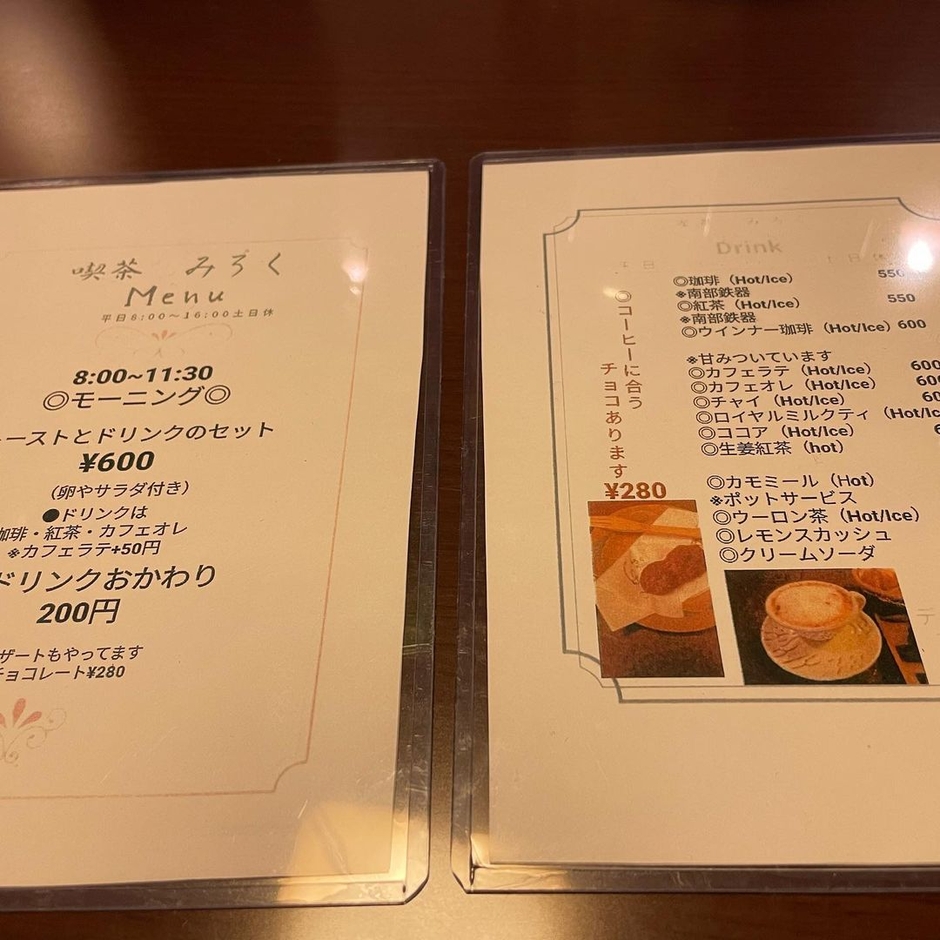 喫茶 みろく
Menu
平日8:00〜16:00土日休
8:00~11:30
◎モーニング◎
ーストとドリンクのセット
¥600
(卵やサラダ付き)
●ドリンクは
珈琲・紅茶・カフェオレ
※カフェラテ+50円
ドリンクおかわり
200円
ザートもやってます
チョコレート¥280
Drink
◎珈琲（Hot/Ice） 550
※南部鉄器
◎紅茶（Hot/Ice） 550
※南部鉄器
◎ウインナー珈琲（Hot/Ice）600
※甘みついています
◎カフェラテ（Hot/Ice） 600
◎カフェオレ（Hot/Ice）
◎チャイ（Hot/Ice）
◎ロイヤルミルクティ（Hot/Ice
◎ココア（Hot/Ice）
◎生姜紅茶（hot）
◎カモミール（Hot）
※ポットサービス
◎ウーロン茶（Hot/Ice）
◎レモンスカッシュ
◎クリームソーダ
◎コーヒーに合う
チョコあります
¥280